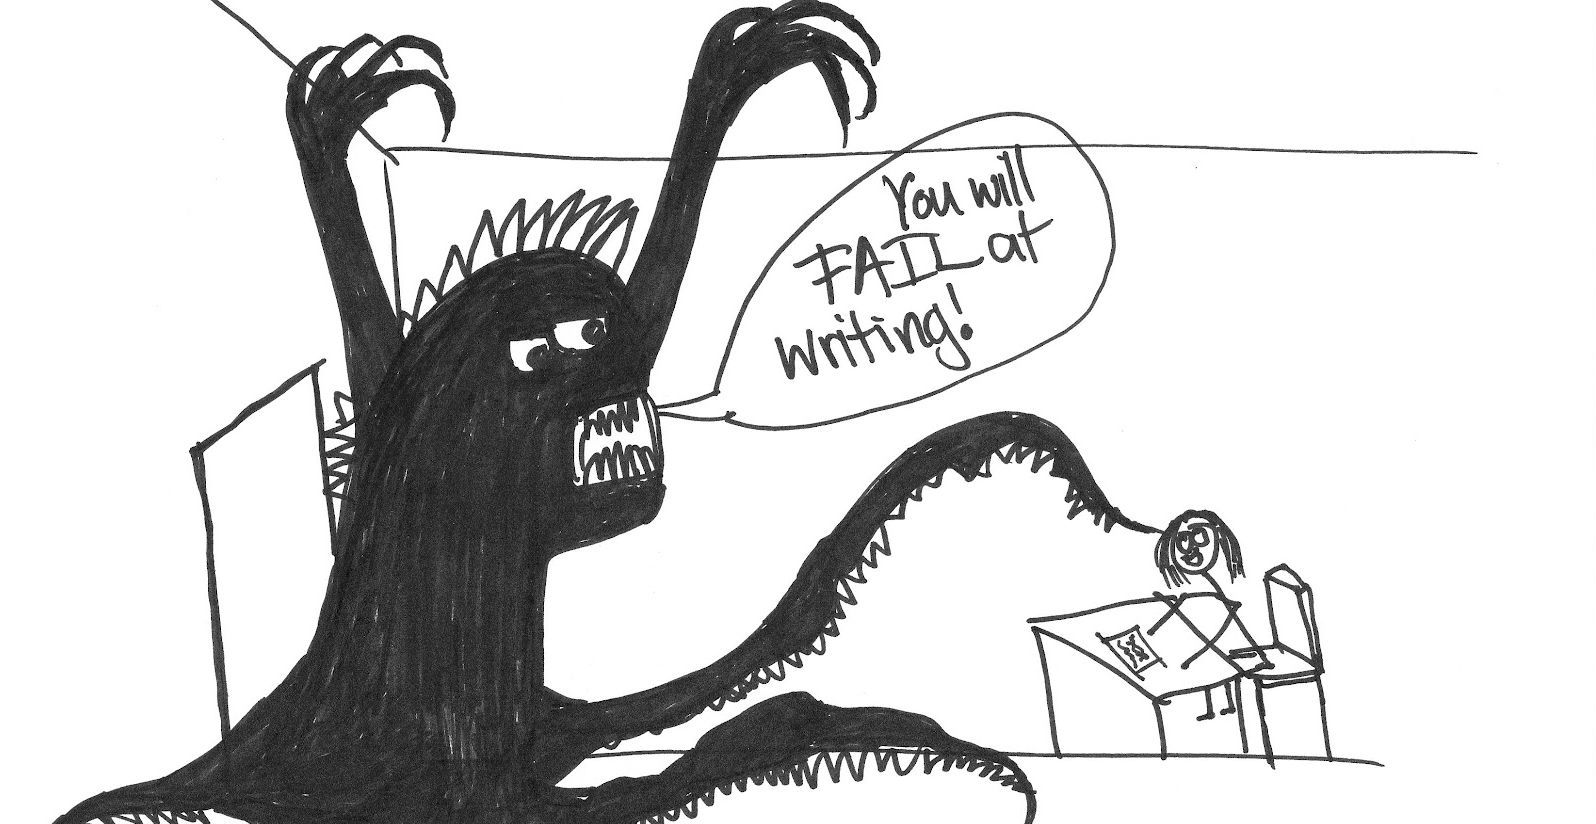 You will
FAIL at
writing!